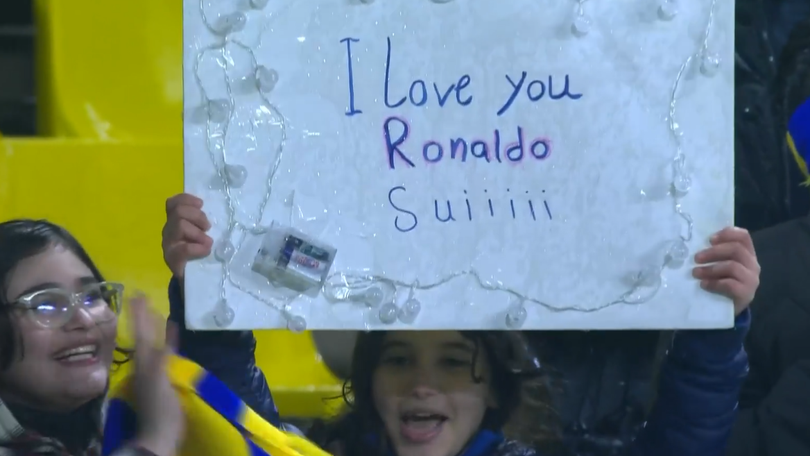 I Love you
Ronaldo
Suiiiii